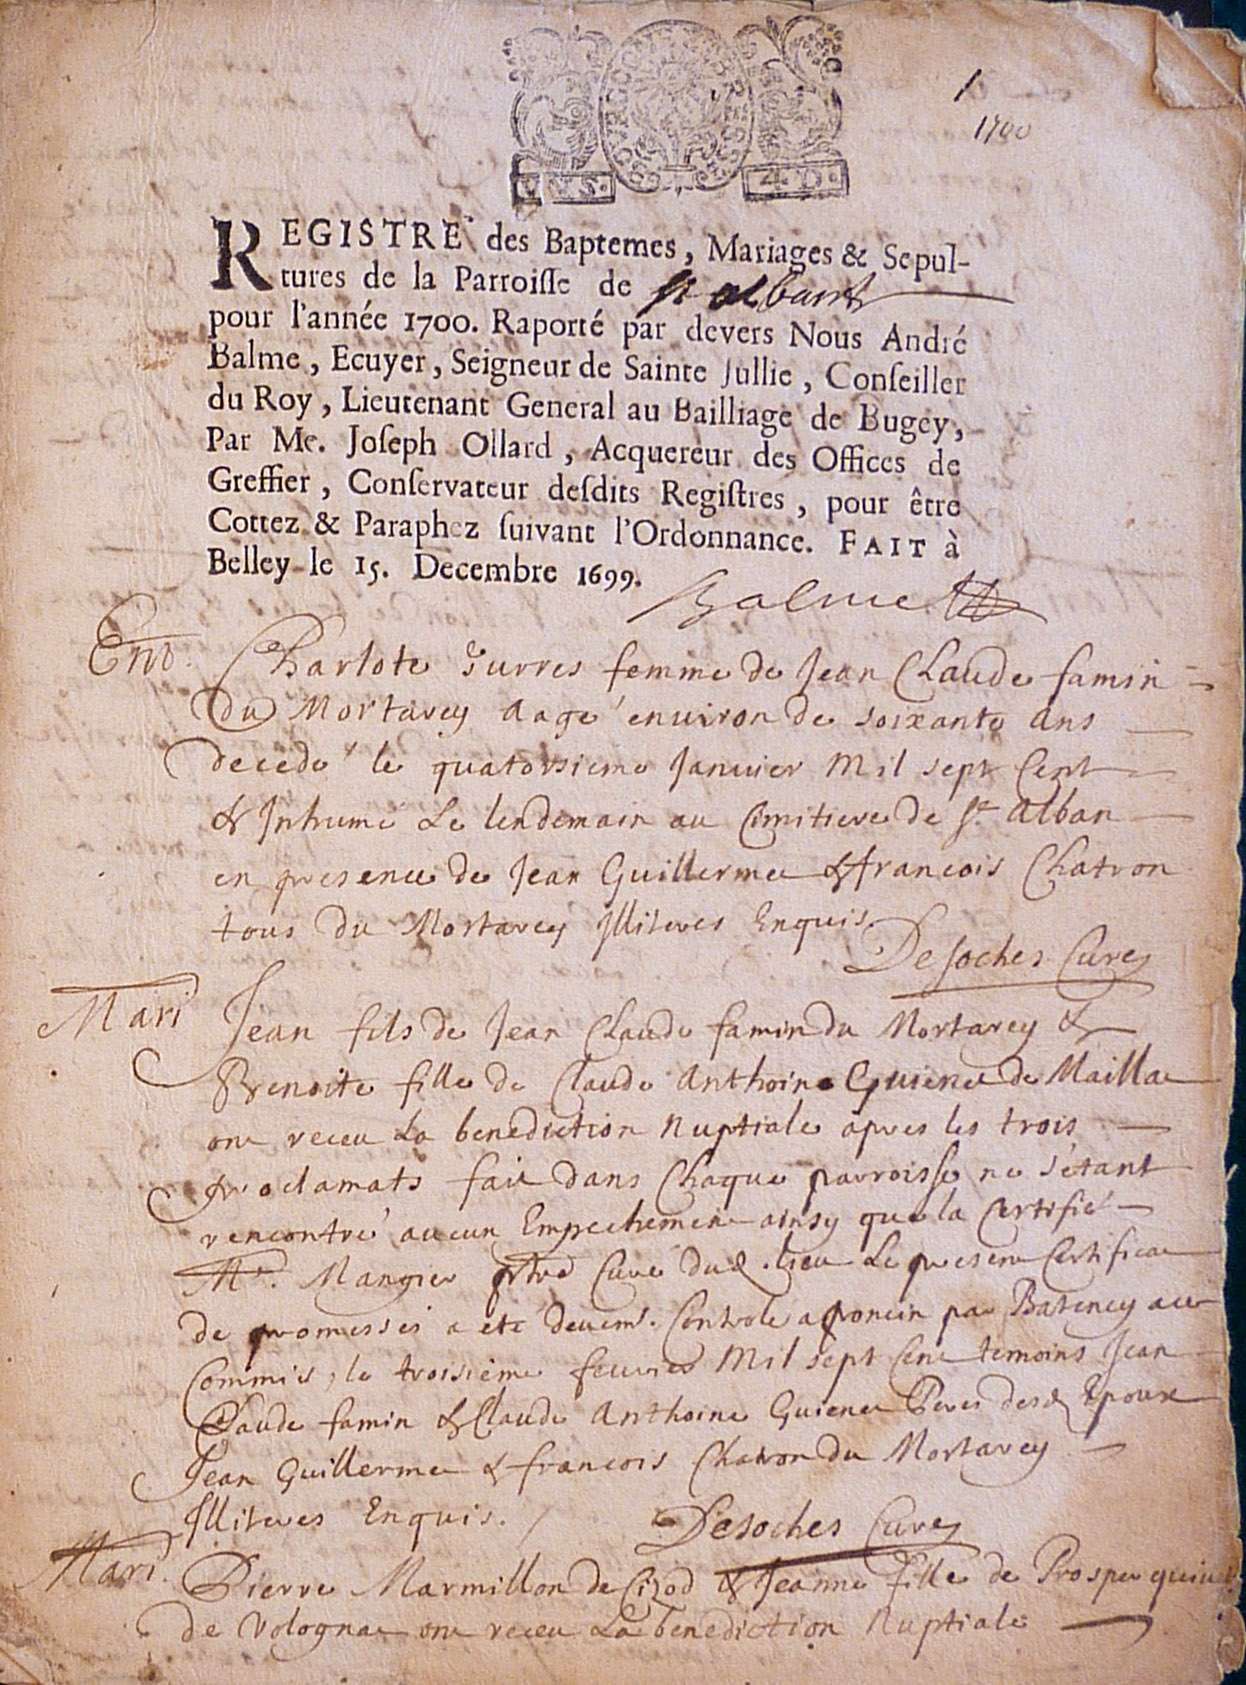 1
1700
REGISTRE des Baptemes, Mariages & Sepul-
tures de la Parroisse de St alban
pour l'année 1700. Raporté par devers Nous André
Balme, Ecuyer, Seigneur de Sainte Jullie, Conseiller
du Roy, Lieutenant General au Bailliage de Bugey,
Par Me. Joseph Ollard, Acquereur des Offices de
Greffier, Conservateur desdits Registres, pour être
Cottez & Paraphez suivant l'Ordonnance. FAIT à
Belley le 15. Decembre 1699.
Balme
Charlote Jurres femme de Jean Claude famin
du Mortarey aagé environ de soixante ans
decedé le quatorsieme Janvier Mil sept Cent
& Inhumé Le lendemain au Cimitiere de St Alban
en presence de Jean Guillerme & francois Chatron
tous du Mortarey Illiteres Enquis.
Desoches Curé
Mari
Jean fils de Jean Claude famin du Mortarey &
Benoite fille de Claude Anthoine Guiene de Mailla
on receu La benediction Nuptiale apres les trois
proclamats fait dans Chaque parroisse ne s'etant
rencontré aucun Empechement ainsy que la Certifié
Mr. Mangier Curé dud. lieu Le present Certificat
de promesses a eté Controle a poncin par Bateney
Commis, le troisieme feuvrier Mil sept Cent temoins Jean
Claude famin & Claude Anthoine Guiene Peres desd Epoux
Jean Guillerme & francois Chatron du Mortarey
Illiteres Enquis.
Desoches Curé
Mari
Pierre Marmillon de Cizod & Jeanne fille de Prosper
de Volognat on receu La benediction Nuptiale